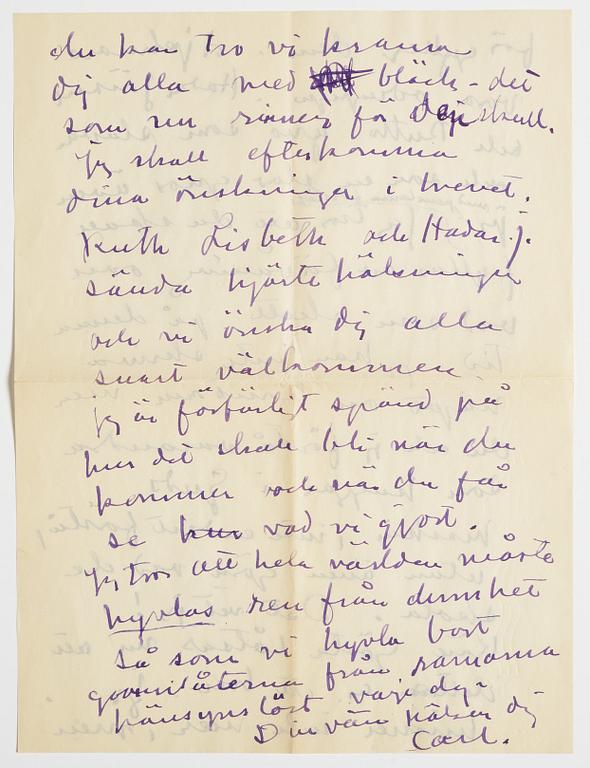 du kan tro vi kransa
dig alla med bläck - det
som nu rinner för dej skull.
jg skall efterkomma
dina önskningar i brevet.
Ruth Lisbeth och Hadar. j.
sända hjärte hälsningar
och vi önska dig alla
snart välkommen
jg är förfärligt spänd på
hur det skall bli när du
kommer och när du får
se hur vad vi gjort.
jg tror att hela världen måste
hyvlas ren från dumhet
så som vi hyvla bort
från ramarna
hänsynslöst varje dag
Din vän hälsar dig
Carl.